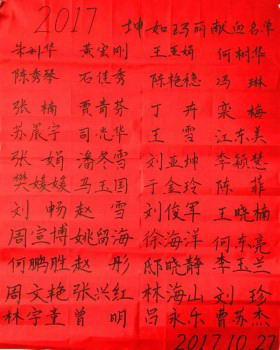 2017 坤如玛丽献血名单
朱树华 黄宏刚 王亚娟 何树华
陈秀琴 石佳秀 陈艳艳 冯琳
张楠 贾春芬 丁卉 栾梅
苏晨宇 司光华 王雪 江东美
张娟 潘冬雪 刘亚坤 李颖慧
樊媛媛 马玉国 于金玲 陈菲
刘畅 赵雪 刘俊军 王晓楠
周宣博 姚留海 徐海洋 何东亮
何鹏胜 赵彤 邸晓静 李玉兰
周文艳 张兴红 林海山 刘珍
林宇童 曾明 吕永乐 曹苏杰
2017.10.21